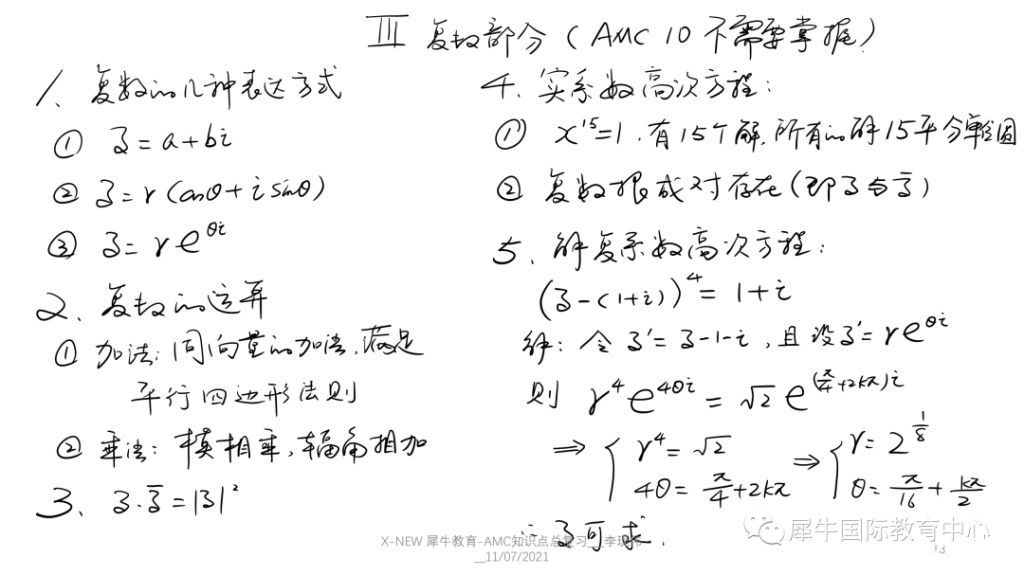 III 复数部分（AMC 10 不需要掌握）
1、复数的几种表达方式
① z = a + bi
② z = r (cosθ + i sinθ)
③ z = r e^{θi}
2、复数的运算
① 加法：同向量的加法，满足
平行四边形法则
② 乘法：模相乘，辐角相加
3、z·z̄ = |z|²
4、实系数高次方程：
① x^{15} = 1，有15个解，所有的解15平分单位圆
② 复数根成对存在（即z与z̄）
5、解复系数高次方程：
(z-(1+i))^4 = 1+i
解：令 z' = z-1-i，且设 z' = re^{θi}
则 r^4 e^{4θi} = √2 e^{(π/4+2kπ)i}
⇒ { r^4 = √2 ⇒ { r = 2^{1/8}
4θ = π/4 + 2kπ θ = π/16 + kπ/2
∴ z可求.
X-NEW 犀牛教育-AMC知识点总复习__李
__11/07/2021
犀牛国际教育中心
13